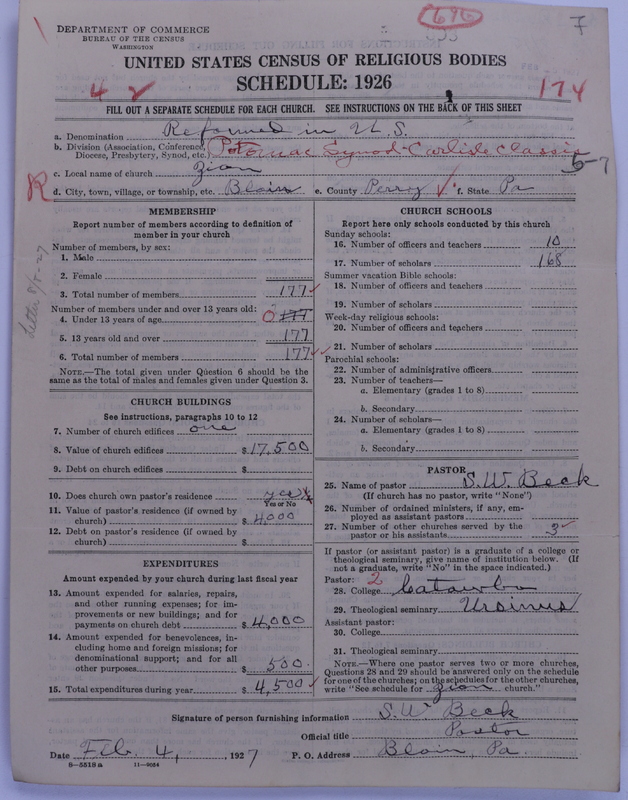 696
7
DEPARTMENT OF COMMERCE
BUREAU OF THE CENSUS
WASHINGTON
UNITED STATES CENSUS OF RELIGIOUS BODIES
SCHEDULE: 1926
4 2
174
FILL OUT A SEPARATE SCHEDULE FOR EACH CHURCH. SEE INSTRUCTIONS ON THE BACK OF THIS SHEET
a. Denomination Reformed in U.S.
b. Division (Association, Conference, Diocese, Presbytery, Synod, etc.) Potomac Synod-Carlisle Classis
5-7
c. Local name of church Zion
R
d. City, town, village, or township, etc. Blain e. County Perry ✓ f. State Pa
Letter 8/5-27
MEMBERSHIP
Report number of members according to definition of
member in your church
Number of members, by sex:
1. Male
2. Female
3. Total number of members 177 ✓
Number of members under and over 13 years old:
4. Under 13 years of age 0 177
5. 13 years old and over 177
6. Total number of members 177 ✓✓
NOTE.—The total given under Question 6 should be
same as the total of males and females given under Question 3.
CHURCH BUILDINGS
See instructions, paragraphs 10 to 12
7. Number of church edifices one
8. Value of church edifices $ 17,500
9. Debt on church edifices $
10. Does church own pastor's residence yes
Yes or No
11. Value of pastor's residence (if owned by
church) $ 4000
12. Debt on pastor's residence (if owned by
church) $
EXPENDITURES
Amount expended by your church during last fiscal year
13. Amount expended for salaries, repairs,
and other running expenses; for im-
provements or new buildings; and for
payments on church debt $ 4,000
14. Amount expended for benevolences, in-
cluding home and foreign missions; for
denominational support; and for all
other purposes $ 500.
15. Total expenditures during year $ 4,500 ✓
CHURCH SCHOOLS
Report here only schools conducted by this church
Sunday schools:
16. Number of officers and teachers 10
17. Number of scholars 168
Summer vacation Bible schools:
18. Number of officers and teachers
19. Number of scholars
Week-day religious schools:
20. Number of officers and teachers
21. Number of scholars
Parochial schools:
22. Number of administrative officers
23. Number of teachers—
a. Elementary (grades 1 to 8)
b. Secondary
24. Number of scholars—
a. Elementary (grades 1 to 8)
b. Secondary
PASTOR
25. Name of pastor S.W. Beck
(If church has no pastor, write "None")
26. Number of ordained ministers, if any, em-
ployed as assistant pastors
27. Number of other churches served by the
pastor or his assistants 3 ✓
If pastor (or assistant pastor) is a graduate of a college or
theological seminary, give name of institution below. (If
not a graduate, write "No" in the space indicated.)
Pastor: 2
28. College Catawba
29. Theological seminary Ursinus
Assistant pastor:
30. College
31. Theological seminary
NOTE.—Where one pastor serves two or more churches,
Questions 28 and 29 should be answered only on the schedule
for one of the churches; on the schedules for the other churches,
write "See schedule for Zion church."
Signature of person furnishing information S.W. Beck
Official title Pastor
Date Feb. 4, , 1927 P. O. Address Blain, Pa.
8—5518 a 11—9054